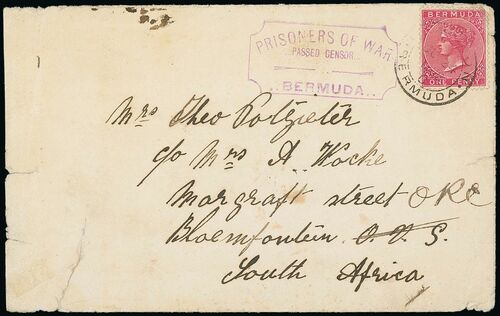 BERMUDA
ONE PENNY
PRISONERS OF WAR
PASSED CENSOR
BERMUDA
BERMUDA
Mrs Theo Potgieter
c/o Mrs A Hocke
Margraft street ORC
Bloemfontein O.V.S.
South Africa